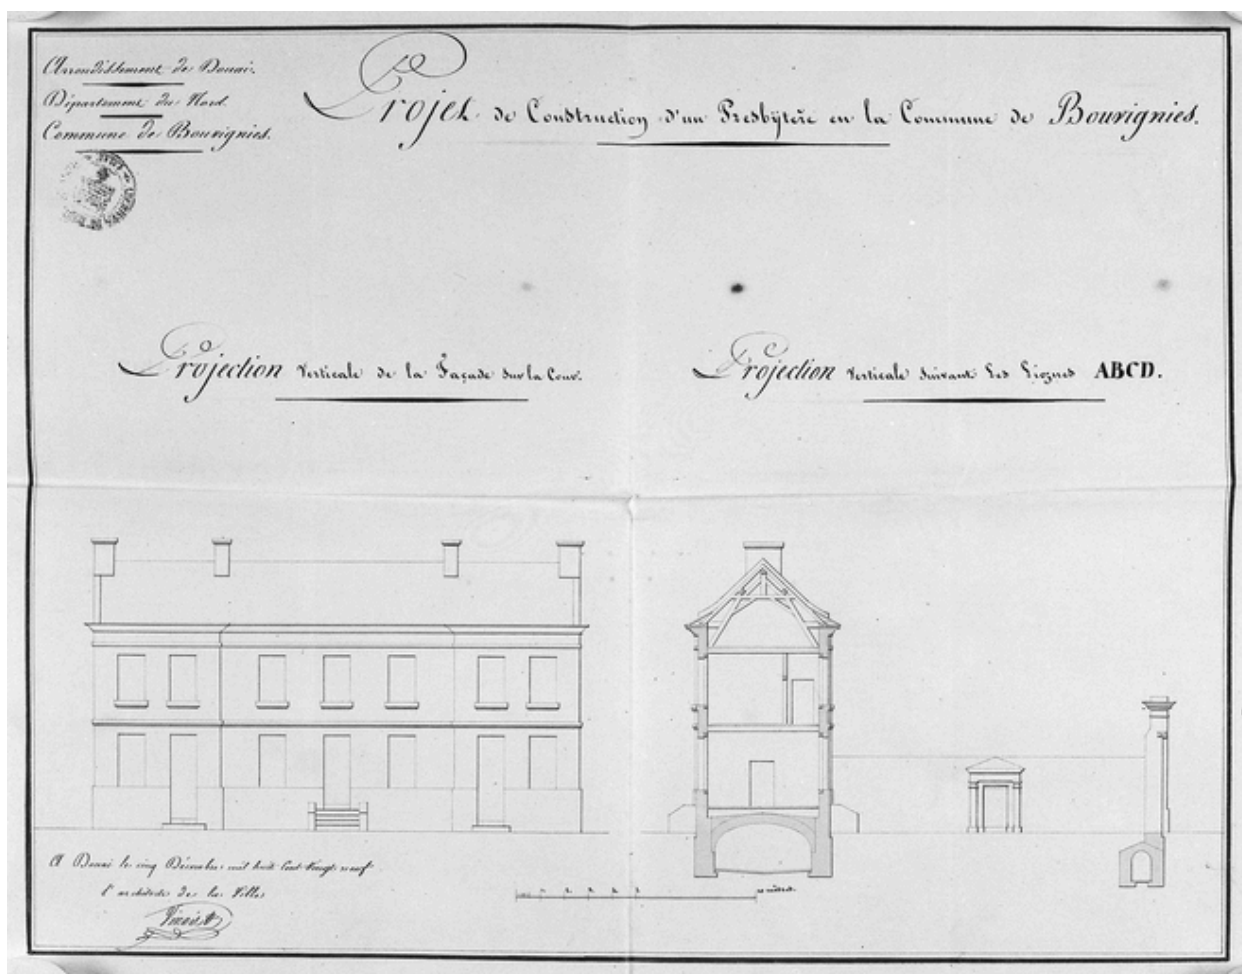 Arrondissement de Douai.
Département du Nord.
Commune de Bouvignies.
Projet de Construction d'un Presbytère en la Commune de Bouvignies.
Projection Verticale de la Façade sur la Cour.
Projection Verticale Suivant Les Lignes ABCD.
A Douai le cinq Décembre mil huit Cent Vingt neuf
l'architecte de la Ville
10 mètres